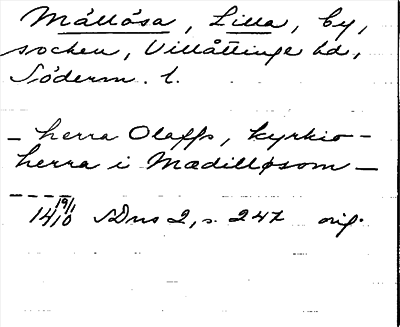 Mållösa, Lilla, by,
socken, Villåttinge hd,
Söderm. l.
– herra Olaffs, kyrkio–
herra i Mædilløsom –
19/1
1410 SDns 2, s. 247 orig.